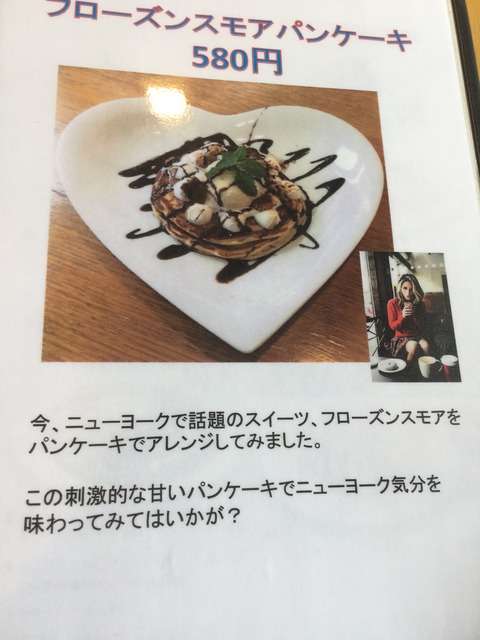 フローズンスモアパンケーキ
580円
今、ニューヨークで話題のスイーツ、フローズンスモアを
パンケーキでアレンジしてみました。
この刺激的な甘いパンケーキでニューヨーク気分を
味わってみてはいかが？